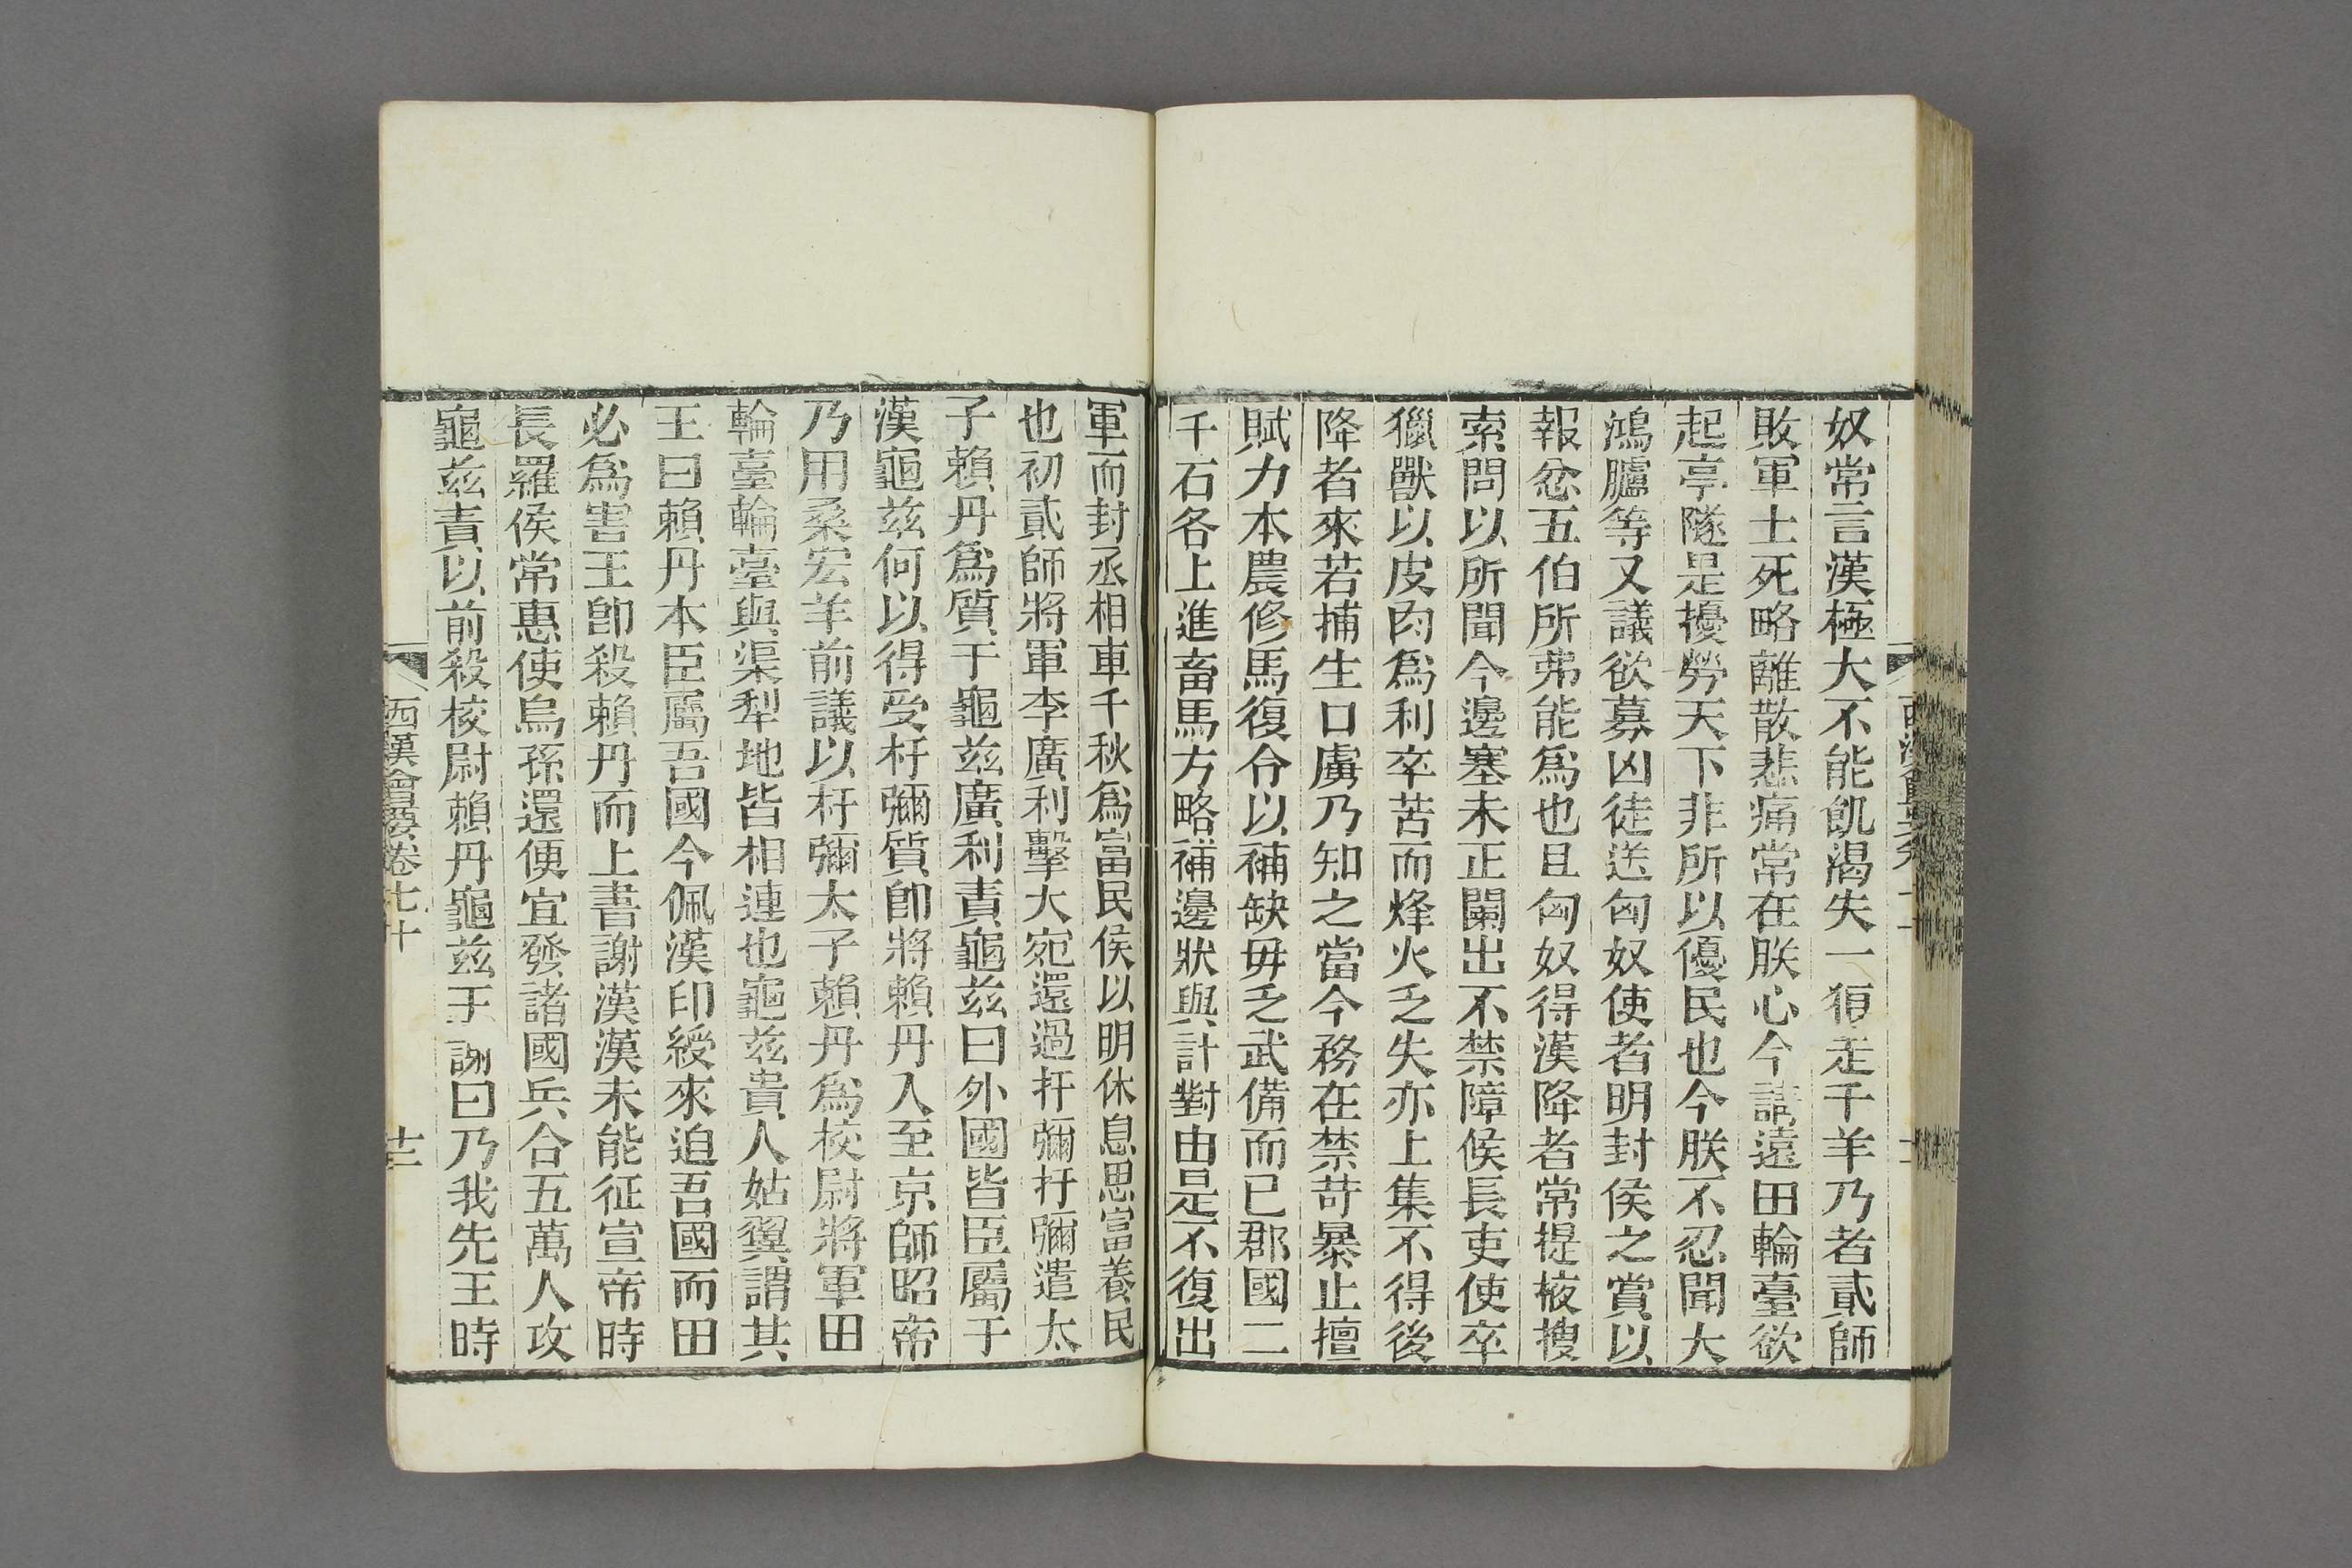 奴常言漢極大不能飢渴失一狼走千羊乃者貳師
敗軍士死略離散悲痛常在朕心今請遠田輪臺欲
起亭隧是擾勞天下非所以優民也今朕不忍聞大
鴻臚等又議欲募凶徒送匈奴使者明封侯之賞以
報忿五伯所弗能爲也且匈奴得漢降者常提掖搜
索問以所聞今邊塞未正闌出不禁障候長吏使卒
獵獸以皮肉爲利卒苦而烽火乏失亦上集不得後
降者來若捕生口虜乃知之當今務在禁苛暴止擅
賦力本農修馬復令以補缺毋乏武備而已郡國二
千石各上進畜馬方略補邊狀與計對由是不復出
軍而封丞相車千秋爲富民侯以明休息思富養民
也初貳師將軍李廣利擊大宛還過扞彌扞彌遣太
子賴丹爲質于龜兹廣利責龜兹曰外國皆臣屬于
漢龜兹何以得受杅彌質卽將賴丹入至京師昭帝
乃用桑宏羊前議以杅彌太子賴丹爲校尉將軍田
輪臺輪臺與渠犁地皆相連也龜兹貴人姑翼謂其
王曰賴丹本臣屬吾國今佩漢印綬來迫吾國而田
必爲害王卽殺賴丹而上書謝漢漢未能征宣帝時
長羅侯常惠使烏孫還便宜發諸國兵合五萬人攻
龜兹責以前殺校尉賴丹龜兹王謝曰乃我先王時
西漢會要卷七十
十三